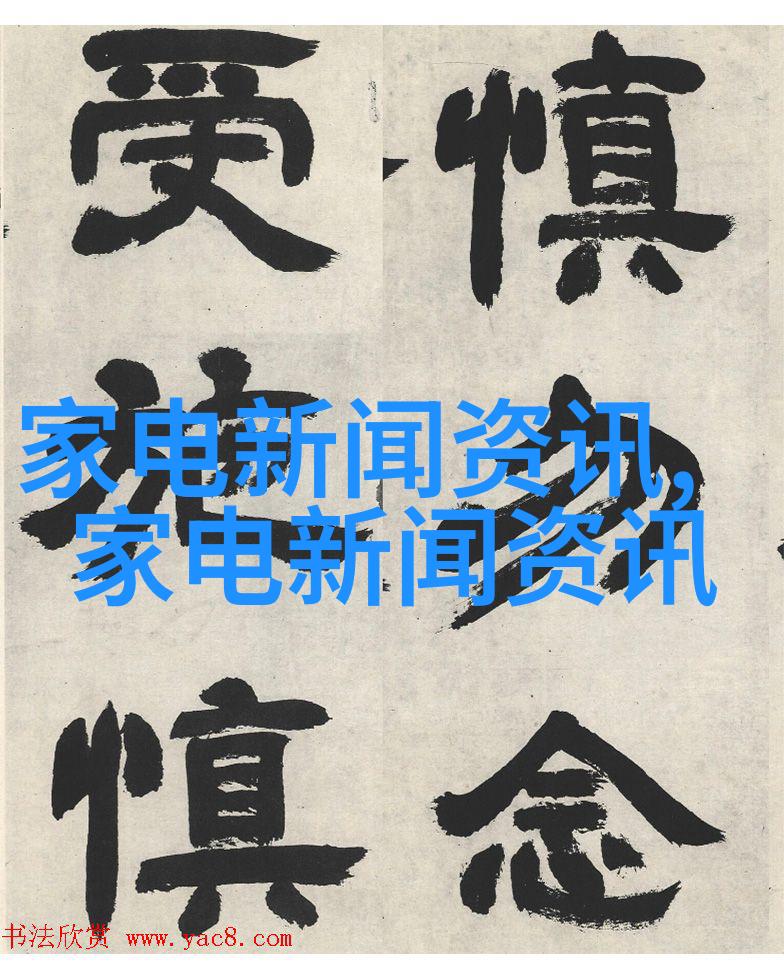 慎勿念
受施慎
家电新闻资讯,
家电新闻资讯
书法欣赏 www.yac8.com